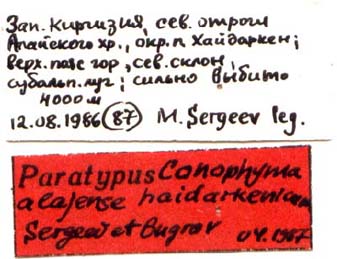 Зап. Киргизия, сев. отроги
Алайского хр., окр. п. Хайдаркен;
верх. пояс гор, сев. склон,
субальп. луг; сильно выбито
4000 м
12.08.1986 (87) M. Sergeev leg.
Paratypus Conophyma
alajense haidarkenicum
Sergeev et Bugrov
04.1987